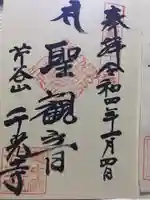 奉拝 令和四年一月四日
聖観音
千光寺